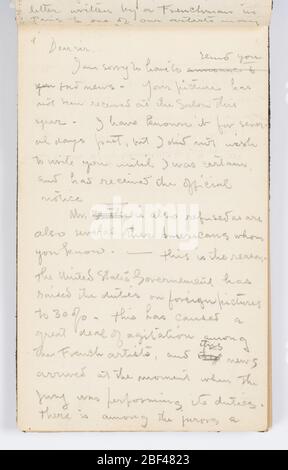 letter written by a Frenchman in
Paris to one of our artists
Dear sir.
send you
I am sorry to have to announce to
you bad news. - Your picture has
not been received at the Salon this
year. - I have known it for sever-
al days past, but I did not wish
to write you until I was certain
and had received the official
notice
Mr. is also refused as are
also several other Americans whom
you know. - This is the reason.
The United States Government has
raised the duties on foreign pictures
to 30%. This has caused a
great deal of agitation among
the French artists, and this news
arrived at the moment when the
jury was performing its duties.
There is among the jurors a
alamy
Image ID: 2BF4823
www.alamy.com